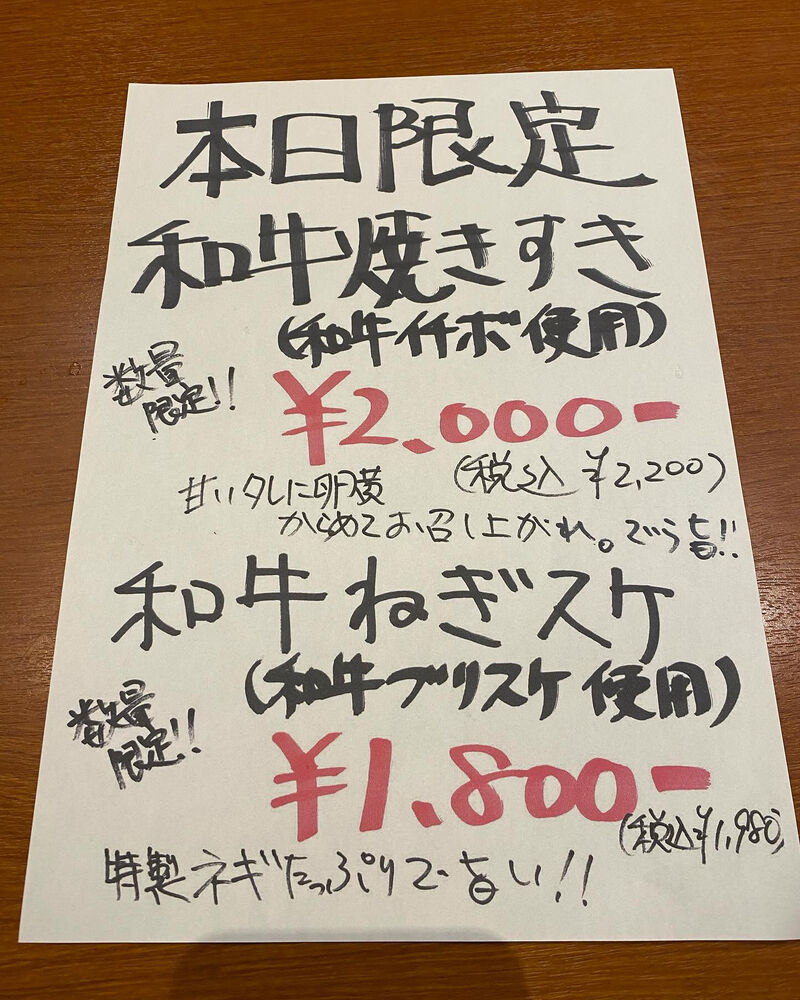 本日限定
和牛焼きすき
(和牛イチボ使用)
数量
限定!!
¥2.000-
(税込¥2,200)
甘いタレに卵黄
からめてお召し上がれ。でら旨!!
和牛ねぎスケ
(和牛ブリスケ使用)
数量
限定!!
¥1.800-
(税込¥1,980)
特製ネギたっぷりで旨い!!